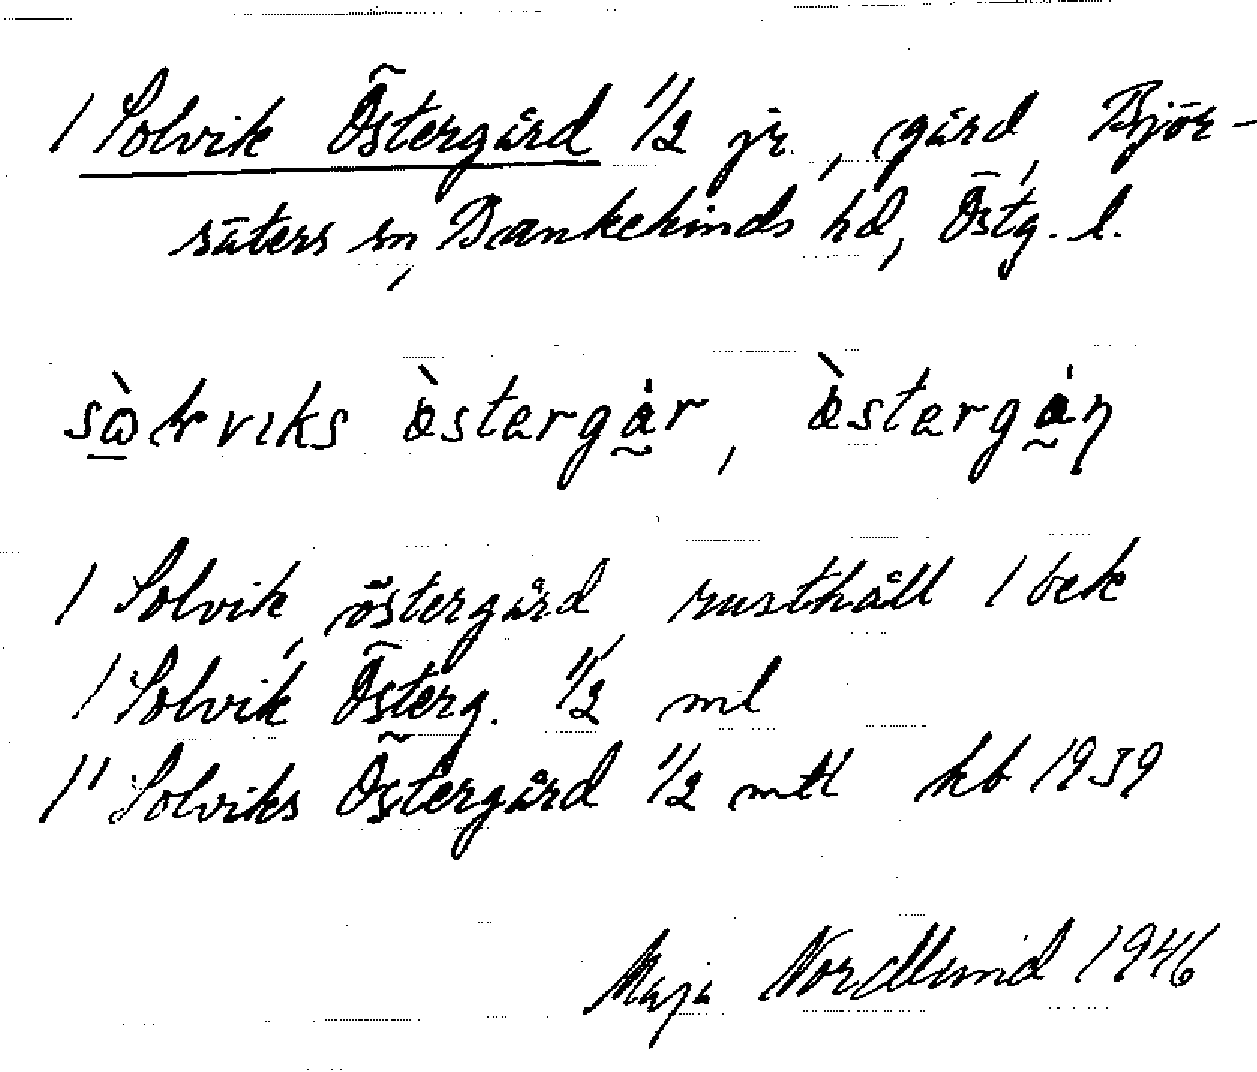 1 Solvik Östergård 1/2 jr., gård, Björ-
säters sn, Bankekinds hd, Östg. l.
östergår,
1 Solvik, östergård, rusthåll 1 bek
1 Solvik Österg. 1/2 ml
1" Solviks Östergård 1/2 mtl kb 1939
Maja Nordlund 1946